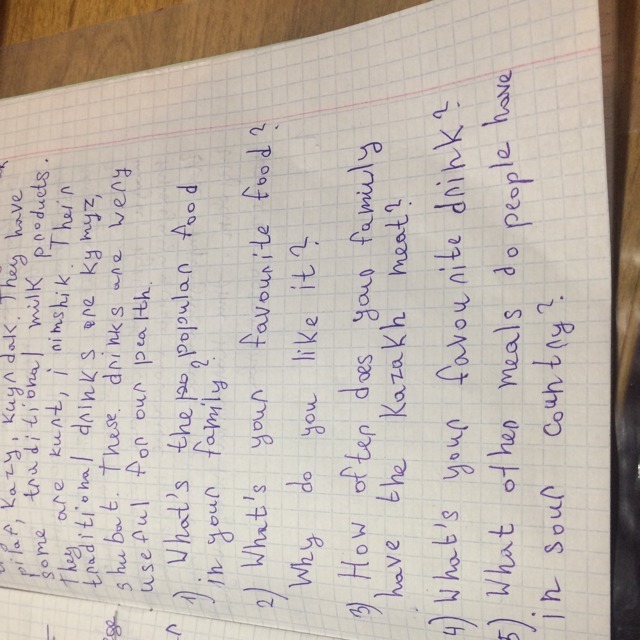 pilar, Kazy Kuyrdak. They have
some traditional milk products.
They are kurt, irimshik. Their
traditional drinks are kymyz,
shubat. These drinks are very
useful for our pealth.
1) What's the po popular food
in your family?
2) What's your favourite food?
Why do you like it?
3) How often does your family
have the Kazakh meat?
4) What's your favourite drink?
5) What other meals do people have
in sour country?